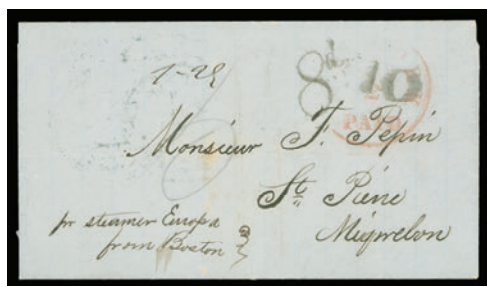 8d 10
PAID
Monsieur F. Pepin
St Piere
Miqwelon
pr steamer Europa
from Boston